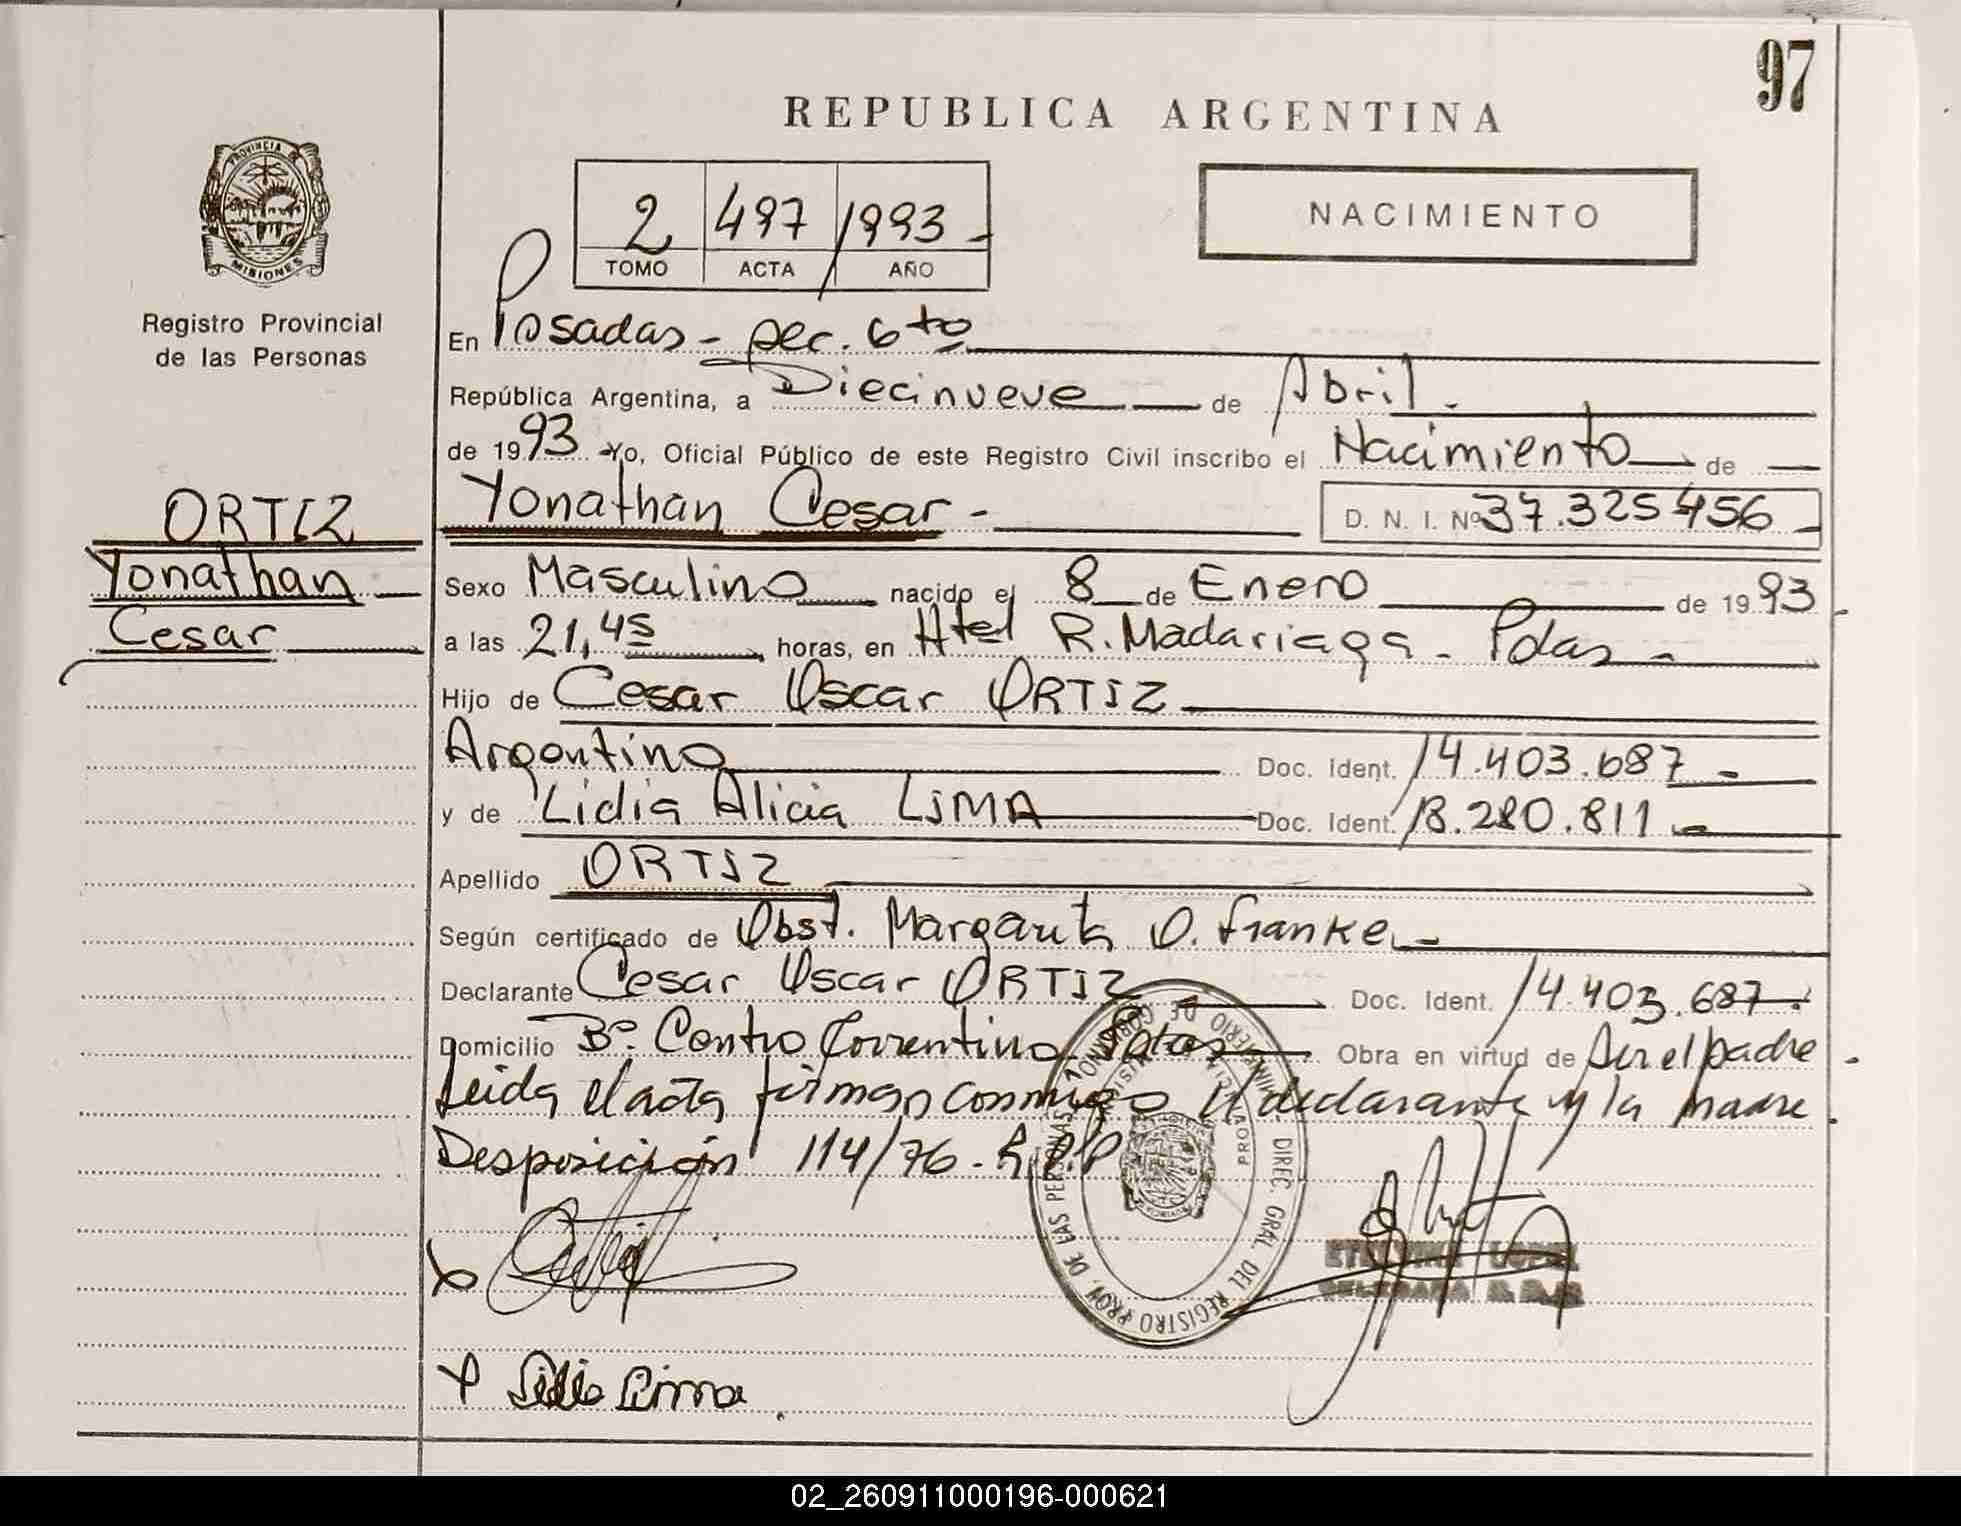 97
REPUBLICA ARGENTINA
PROVINCIA DE
MISIONES
2 497 1993 -
TOMO ACTA AÑO
NACIMIENTO
Registro Provincial
de las Personas
En Posadas - sec. 6to
República Argentina, a Diecinueve de Abril.
de 1993 Yo, Oficial Público de este Registro Civil inscribo el Nacimiento de
ORTIZ
Yonathan
Cesar
Yonathan Cesar - D. N. I. Nº 37.325456 -
Sexo Masculino nacido el 8 de Enero de 1993
a las 21,45 horas, en Htel R. Madariaga - Pdas -
Hijo de Cesar Oscar ORTIZ
Argentino Doc. Ident. 14.403.687 -
y de Lidia Alicia LIMA Doc. Ident. 18.280.811 -
Apellido ORTIZ
Según certificado de Obst. Margarita O. Franke -
Declarante Cesar Oscar ORTIZ Doc. Ident. 14.403.687.
Domicilio Bº. Centro Correntino Pdas Obra en virtud de Ser el padre
Leida el acta firman conmigo el declarante y la madre.
Desposición 114/76 - R.P.P
DIREC. GRAL. DEL REGISTRO PROV. DE LAS PERSONAS
LOPEZ
Lidia Lima
02_260911000196-000621